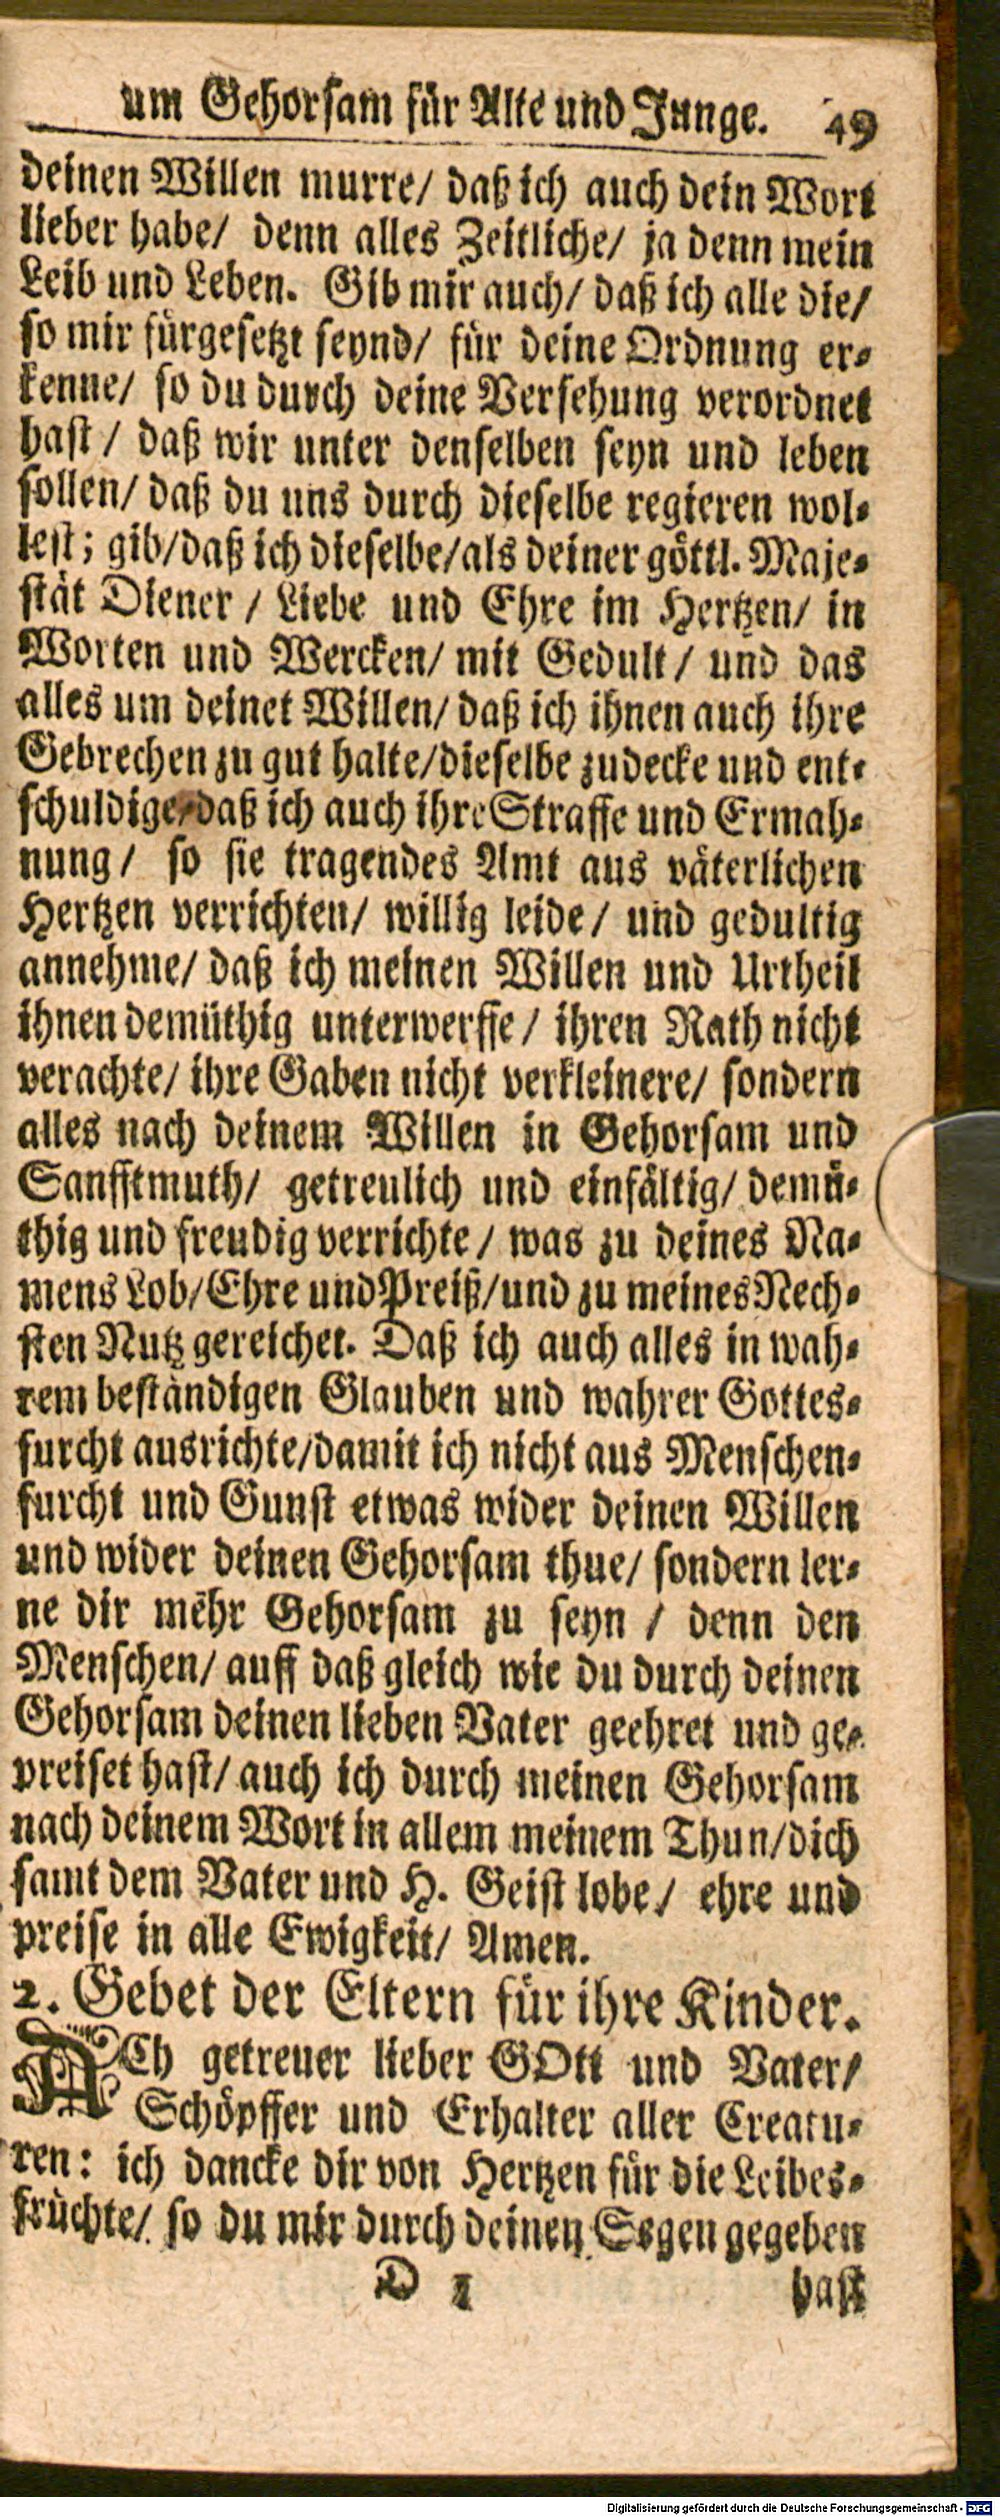 um Gehorsam für Alte und Junge. 49
deinen Willen murre/ daß ich auch dein Wort
lieber habe/ denn alles Zeitliche/ ja denn mein
Leib und Leben. Gib mir auch/ daß ich alle die/
so mir fürgesetzt seynd/ für deine Ordnung er-
kenne/ so du durch deine Versehung verordnet
hast / daß wir unter denselben seyn und leben
sollen/ daß du uns durch dieselbe regieren wol-
lest; gib/daß ich dieselbe/als deiner göttl. Maje-
stät Diener / Liebe und Ehre im Hertzen/ in
Worten und Wercken/ mit Gedult / und das
alles um deinet Willen/ daß ich ihnen auch ihre
Gebrechen zu gut halte/dieselbe zudecke und ent-
schuldige/daß ich auch ihre Straffe und Ermah-
nung / so sie tragendes Amt aus väterlichen
Hertzen verrichten/ willig leide / und gedultig
annehme/ daß ich meinen Willen und Urtheil
ihnen demüthig unterwerffe / ihren Rath nicht
verachte/ ihre Gaben nicht verkleinere/ sondern
alles nach deinem Willen in Gehorsam und
Sanfftmuth/ getreulich und einfältig/ demü-
thig und freudig verrichte / was zu deines Na-
mens Lob/Ehre und Preiß/und zu meines Nech-
sten Nutz gereichet. Daß ich auch alles in wah-
rem beständigen Glauben und wahrer Gottes-
furcht ausrichte/damit ich nicht aus Menschen-
furcht und Gunst etwas wider deinen Willen
und wider deinen Gehorsam thue/ sondern ler-
ne dir mehr Gehorsam zu seyn / denn den
Menschen/ auff daß gleich wie du durch deinen
Gehorsam deinen lieben Vater geehret und ge-
preiset hast/ auch ich durch meinen Gehorsam
nach deinem Wort in allem meinem Thun/dich
samt dem Vater und H. Geist lobe/ ehre und
preise in alle Ewigkeit/ Amen.
2. Gebet der Eltern für ihre Kinder.
ACh getreuer lieber GOtt und Vater/
Schöpffer und Erhalter aller Creatu-
ren: ich dancke dir von Hertzen für die Leibes-
früchte/ so du mir durch deinen Segen gegeben
D 1 hast
Digitalisierung gefördert durch die Deutsche Forschungsgemeinschaft - DFG